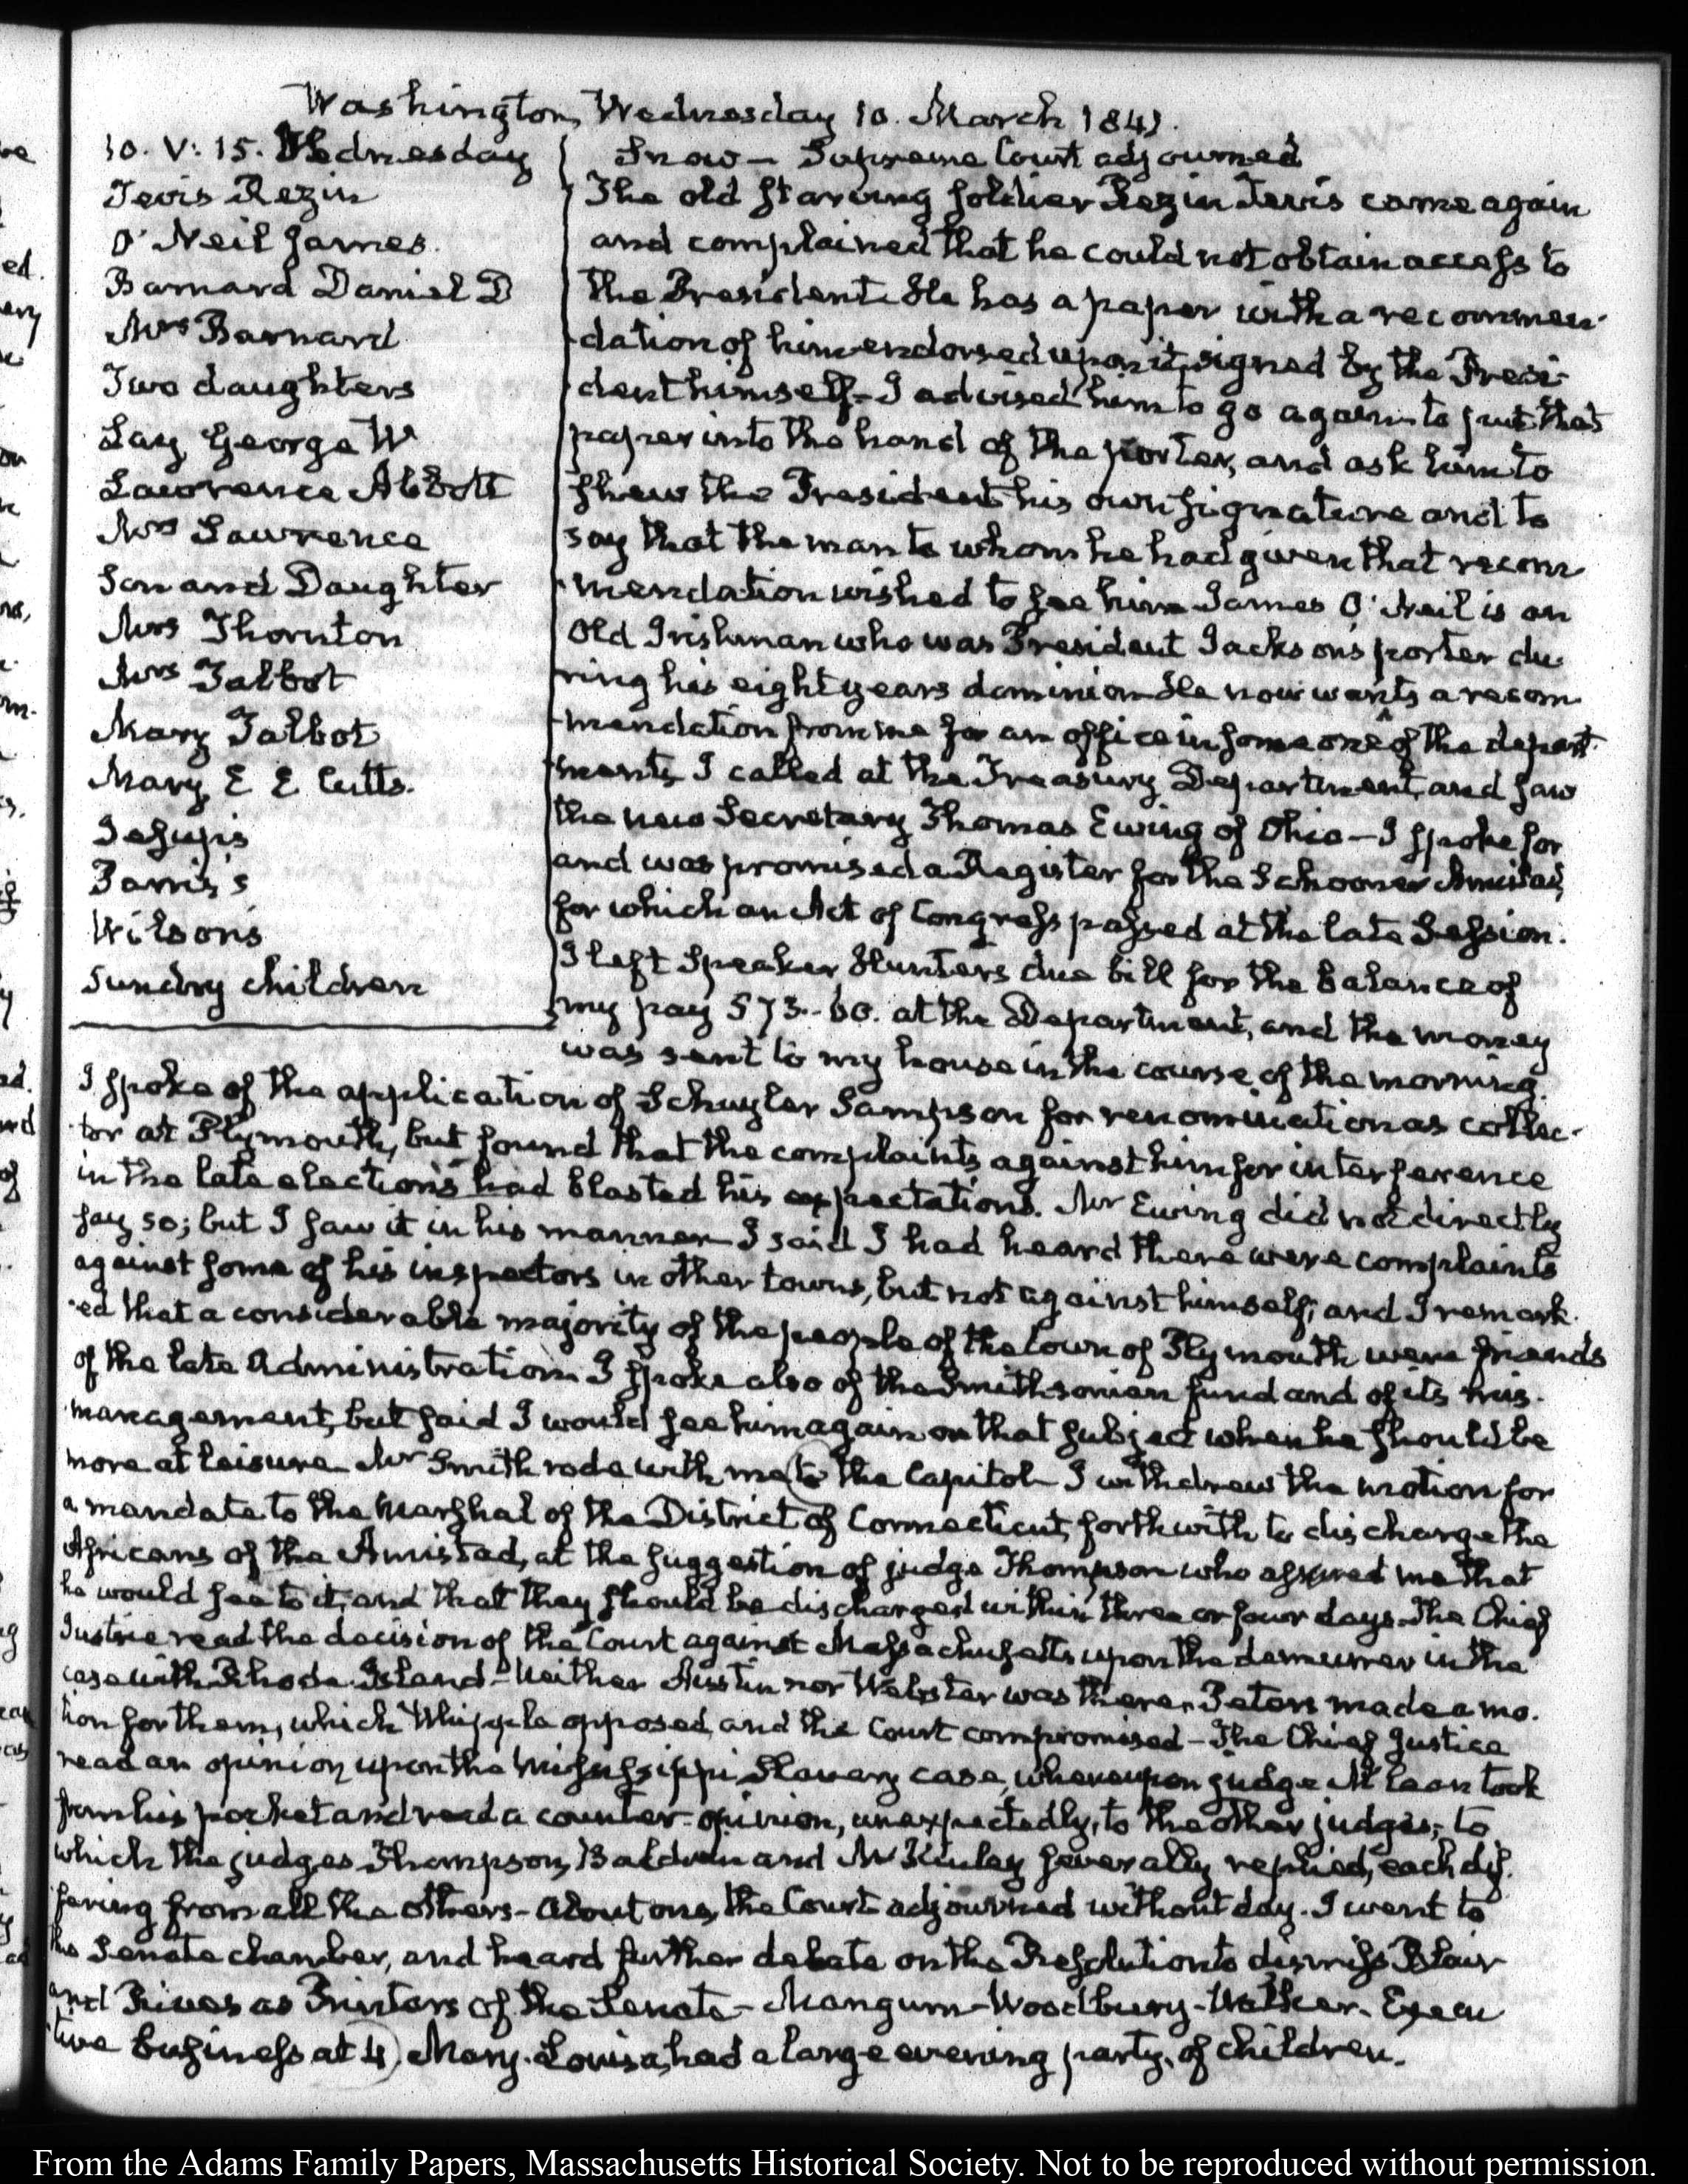 Washington, Wednesday 10. March 1841.
10. V: 15. Wednesday
Tevis Rezin
O'Neil James.
Barnard Daniel D
Mrs Barnard
Two daughters
Lay George W
Lawrence Abbott
Mrs Lawrence
Son and Daughter
Mrs Thornton
Mrs Talbot
Mary Talbot
Mary E E Cutts.
Jesup's
Wilson's
Sundry children
Snow — Supreme Court adjourned
The old starving soldier Rezin Tevis came again
and complained that he could not obtain access to
the President. He has a paper with a recommen-
dation of him endorsed upon it, signed by the Presi-
dent himself — I advised him to go again to put that
paper into the hand of the porter, and ask him to
shew the President his own signature and to
say that the man to whom he had given that recom
mendation wished to see him. James O'Neil is an
old Irishman who was President Jackson's porter du
ring his eight years dominion. He now wants a recom
mendation from me for an office in some one of the depart-
ments. I called at the Treasury Department, and saw
the new Secretary Thomas Ewing of Ohio — I spoke for
and was promised a Register for the Schooner Amistad,
for which an Act of Congress passed at the late Session.
I left Speaker Hunter's due bill for the balance of
my pay 573.. 60. at the Department, and the money
was sent to my house in the course of the morning.
I spoke of the application of Schuyler Sampson for renomination as collec-
tor at Plymouth, but found that the complaints against him for interference
in the late elections had blasted his expectations. Mr Ewing did not directly
say so; but I saw it in his manner — I said I had heard there were complaints
against some of his inspectors in other towns, but not against himself; and I remark-
ed that a considerable majority of the people of the town of Plymouth were friends
of the late Administration. I spoke also of the Smithsonian fund and of its mis-
management, but said I would see him again on that subject when he should be
more at leisure. Mr Smith rode with me to the Capitol — I withdrew the motion for
a mandate to the Marshal of the District of Connecticut, forthwith to discharge the
Africans of the Amistad, at the suggestion of judge Thompson who assured me that
he would see to it, and that they should be discharged within three or four days. The Chief
Justice read the decision of the Court against Massachusetts upon the demurrer in the
case with Rhode-Island — Neither Austin nor Webster was there. Peters made a mo-
tion for them, which Whipple opposed, and the Court compromised — The Chief Justice
read an opinion upon the Mississippi Slavery case, whereupon judge McLean took
from his pocket and read a counter-opinion, unexpectedly, to the other judges; to
which the judges Thompson, Baldwin and McKinley severally replied, each dif-
fering from all the others — About one, the Court adjourned without day. I went to
the Senate chamber, and heard further debate on the Resolution to dismiss Blair
and Rives as Printers of the Senate — Mangum — Woodbury — Walker. Execu
tive business at 4. Mary-Louisa had a large evening party of children.
From the Adams Family Papers, Massachusetts Historical Society. Not to be reproduced without permission.